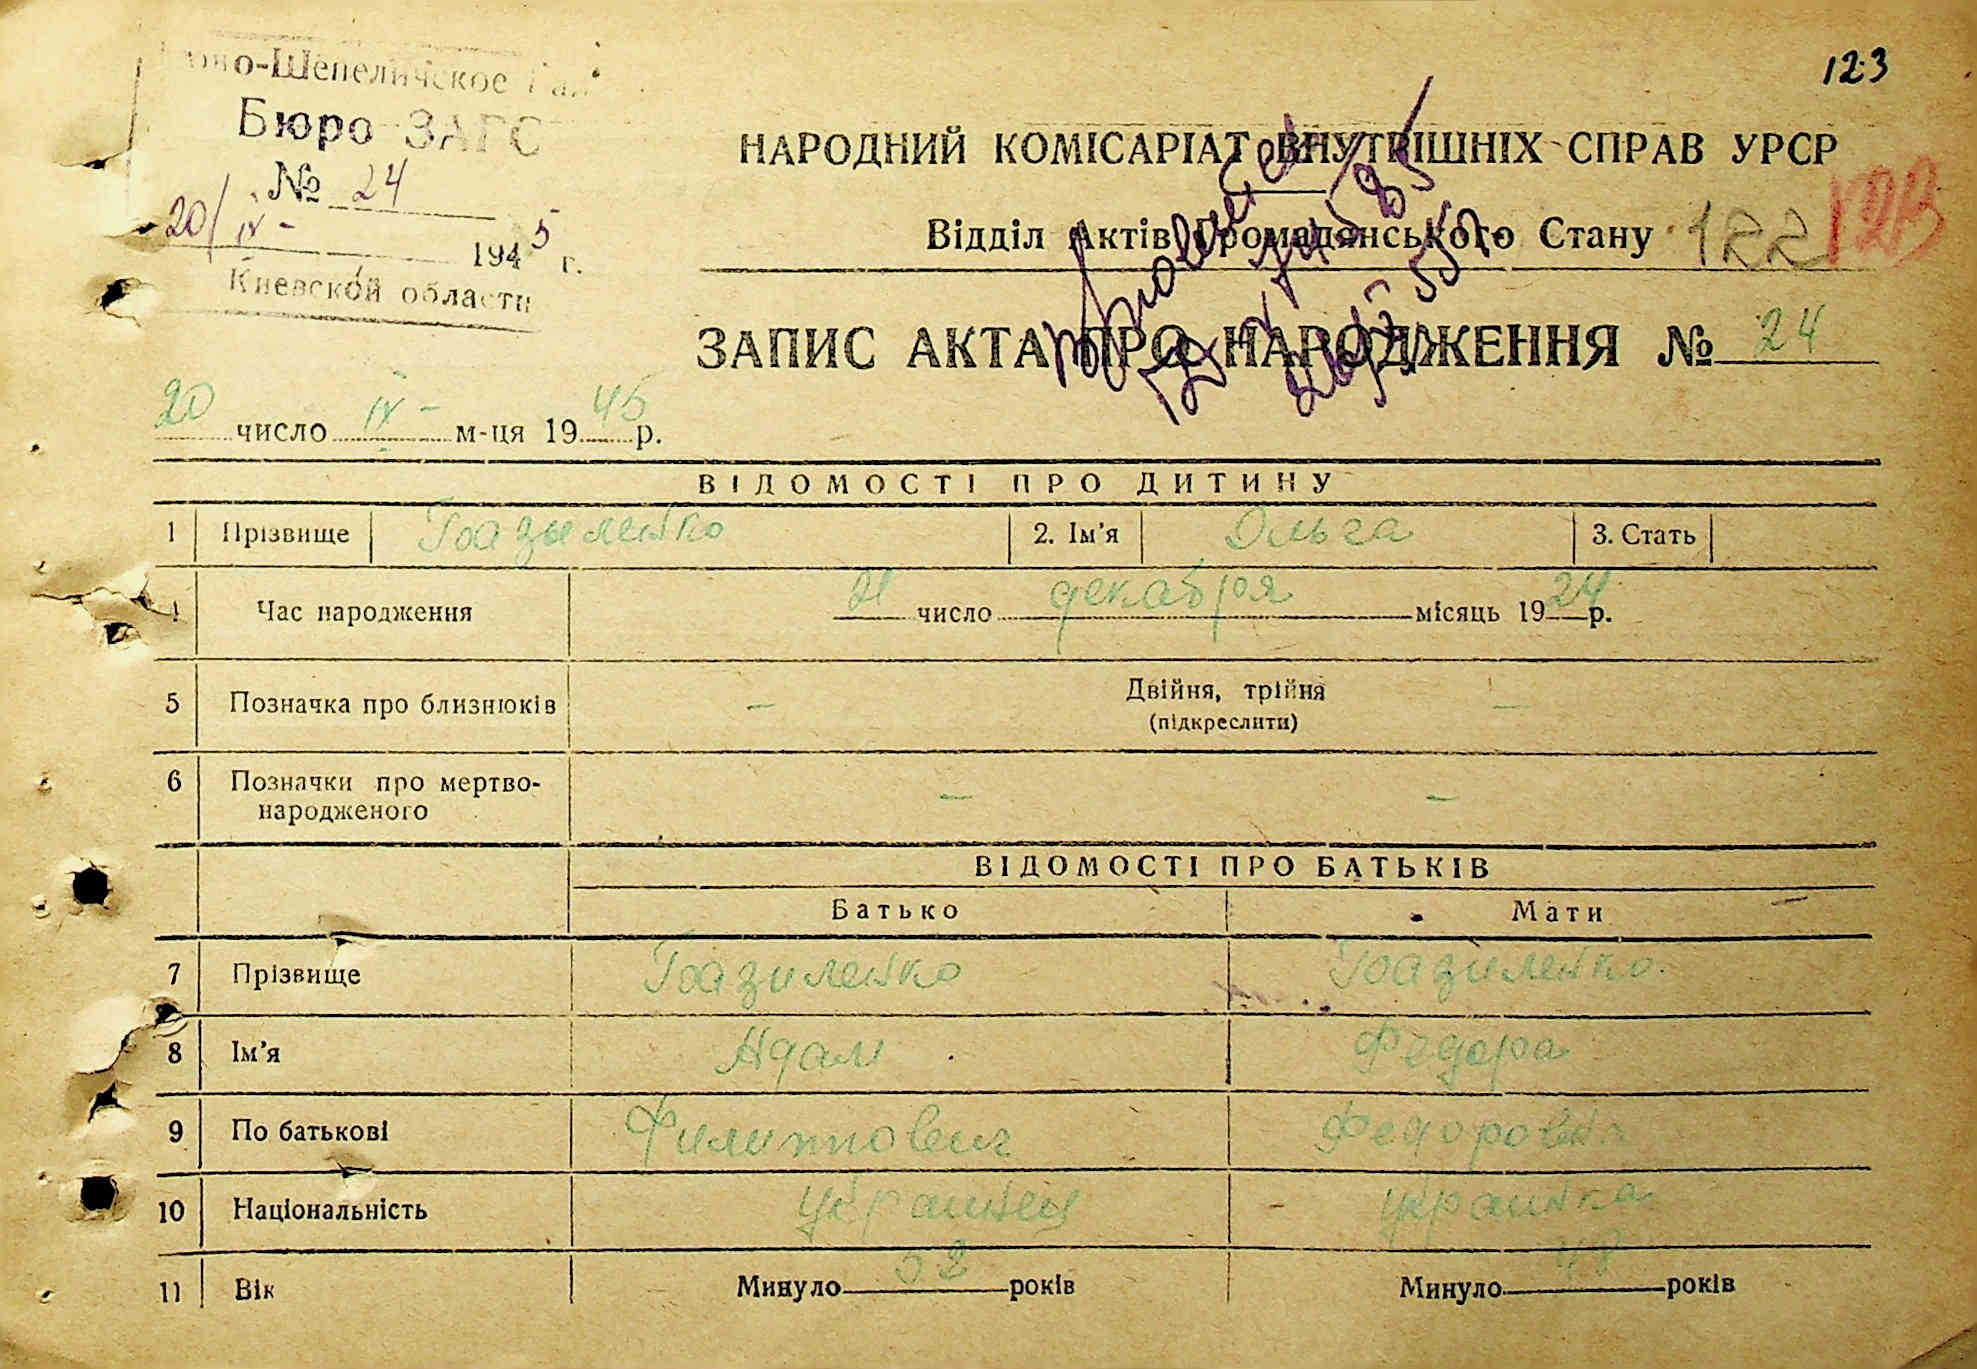 123
Бюро ЗАГС
№ 24
20/IV- 1945 г.
Киевской области
НАРОДНИЙ КОМІСАРІАТ ВНУТРІШНІХ СПРАВ УРСР
Відділ Актів Громадянського Стану 122 123
ЗАПИС АКТА ПРО НАРОДЖЕННЯ № 24
20 число IV- м-ця 1945 р.
ВІДОМОСТІ ПРО ДИТИНУ
1 Прізвище Базыленко 2. Ім'я Ольга 3. Стать
4 Час народження 21 число декабря місяць 1924 р.
5 Позначка про близнюків – Двійня, трійня –
(підкреслити)
6 Позначки про мертво-
народженого – –
ВІДОМОСТІ ПРО БАТЬКІВ
Батько Мати
7 Прізвище Базиленко Базиленко
8 Ім'я Адам Федора
9 По батькові Филиппович Федоровна
10 Національність украинец украинка
11 Вік Минуло років Минуло 48 років